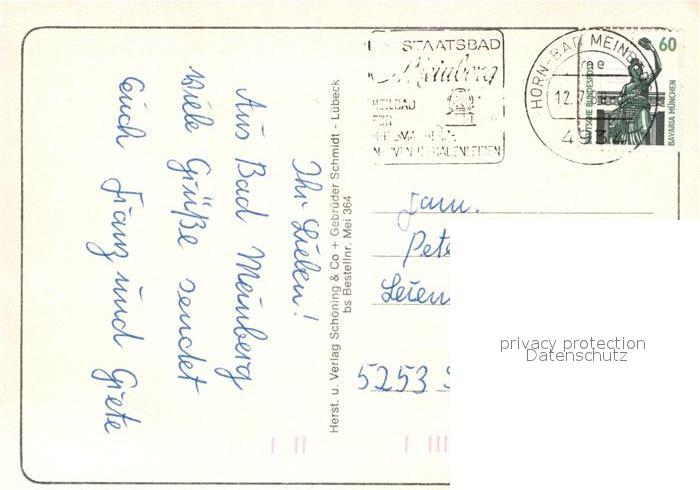 Ihr Lieben!
Aus Bad Meinberg
viele Grüße sendet
Euch Franz und Grete
Herst. u. Verlag Schöning & Co + Gebrüder Schmidt - Lübeck
bs Bestellnr. Mei 364
STAATSBAD
Meinberg
FÜR
HORN-BAD MEINBERG
me
12.7
493
60
DEUTSCHE BUNDESPOST
BAVARIA MÜNCHEN
Fam.
Pete
Leien
5253
privacy protection
Datenschutz